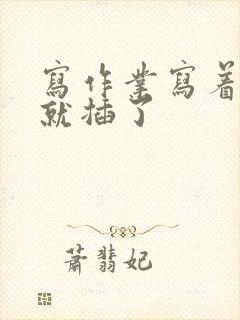 寫作業寫着
就插了
蕭翡妃